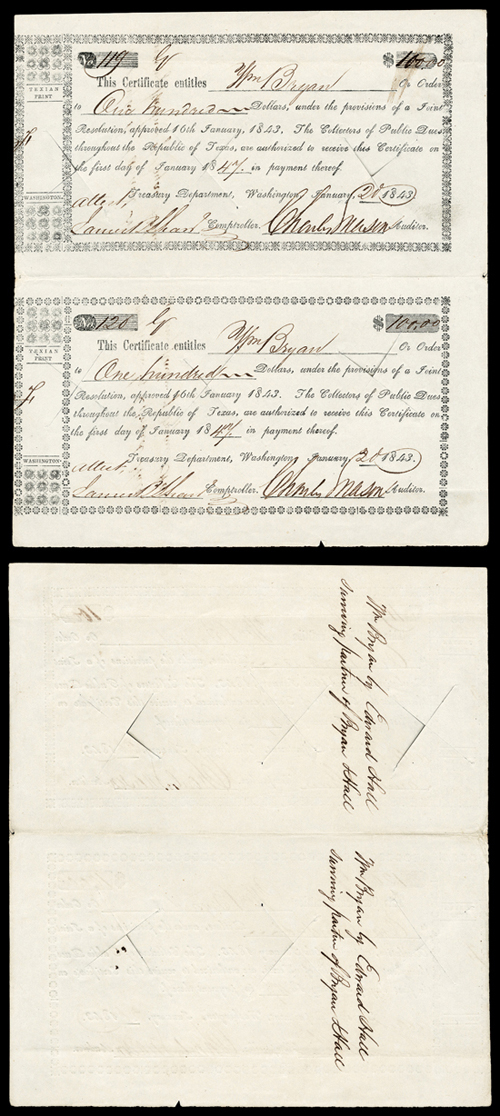 No. 119
$100.00
This Certificate entitles Wm Bryan Or Order
to One hundred Dollars, under the provisions of a Joint
Resolution, approved 16th January, 1843. The Collectors of Public Dues
throughout the Republic of Texas, are authorized to receive this Certificate on
the first day of January 1847. in payment thereof.
Treasury Department, Washington, January 20 1843.
Attest,
Comptroller. Charles Mason Auditor.
TEXIAN
PRINT
WASHINGTON.
No. 120
$100.00
This Certificate entitles Wm Bryan Or Order
to One hundred Dollars, under the provisions of a Joint
Resolution, approved 16th January, 1843. The Collectors of Public Dues
throughout the Republic of Texas, are authorized to receive this Certificate on
the first day of January 1847. in payment thereof.
Treasury Department, Washington, January 20 1843.
Attest,
Comptroller. Charles Mason Auditor.
TEXIAN
PRINT
WASHINGTON.
Wm Bryan by Edward Hall
surviving partner of Bryan & Hall
Wm Bryan by Edward Hall
surviving partner of Bryan & Hall